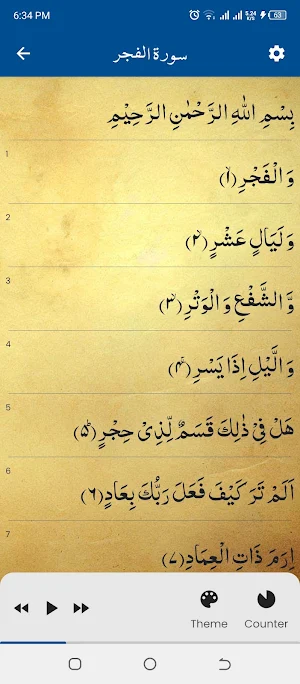 6:34 PM 5.24 K/s 63
سورة الفجر
بِسْمِ اللهِ الرَّحْمٰنِ الرَّحِيْمِ
1
وَالْفَجْرِ (۱)
2
وَلَيَالٍ عَشْرٍ (۲)
3
وَّالشَّفْعِ وَالْوَتْرِ (۳)
4
وَالَّيْلِ اِذَا يَسْرِ (۴)
5
هَلْ فِيْ ذٰلِكَ قَسَمٌ لِّذِيْ حِجْرٍ (۵)
6
اَلَمْ تَرَ كَيْفَ فَعَلَ رَبُّكَ بِعَادٍ (۶)
7
اِرَمَ ذَاتِ الْعِمَادِ (۷)
Theme Counter